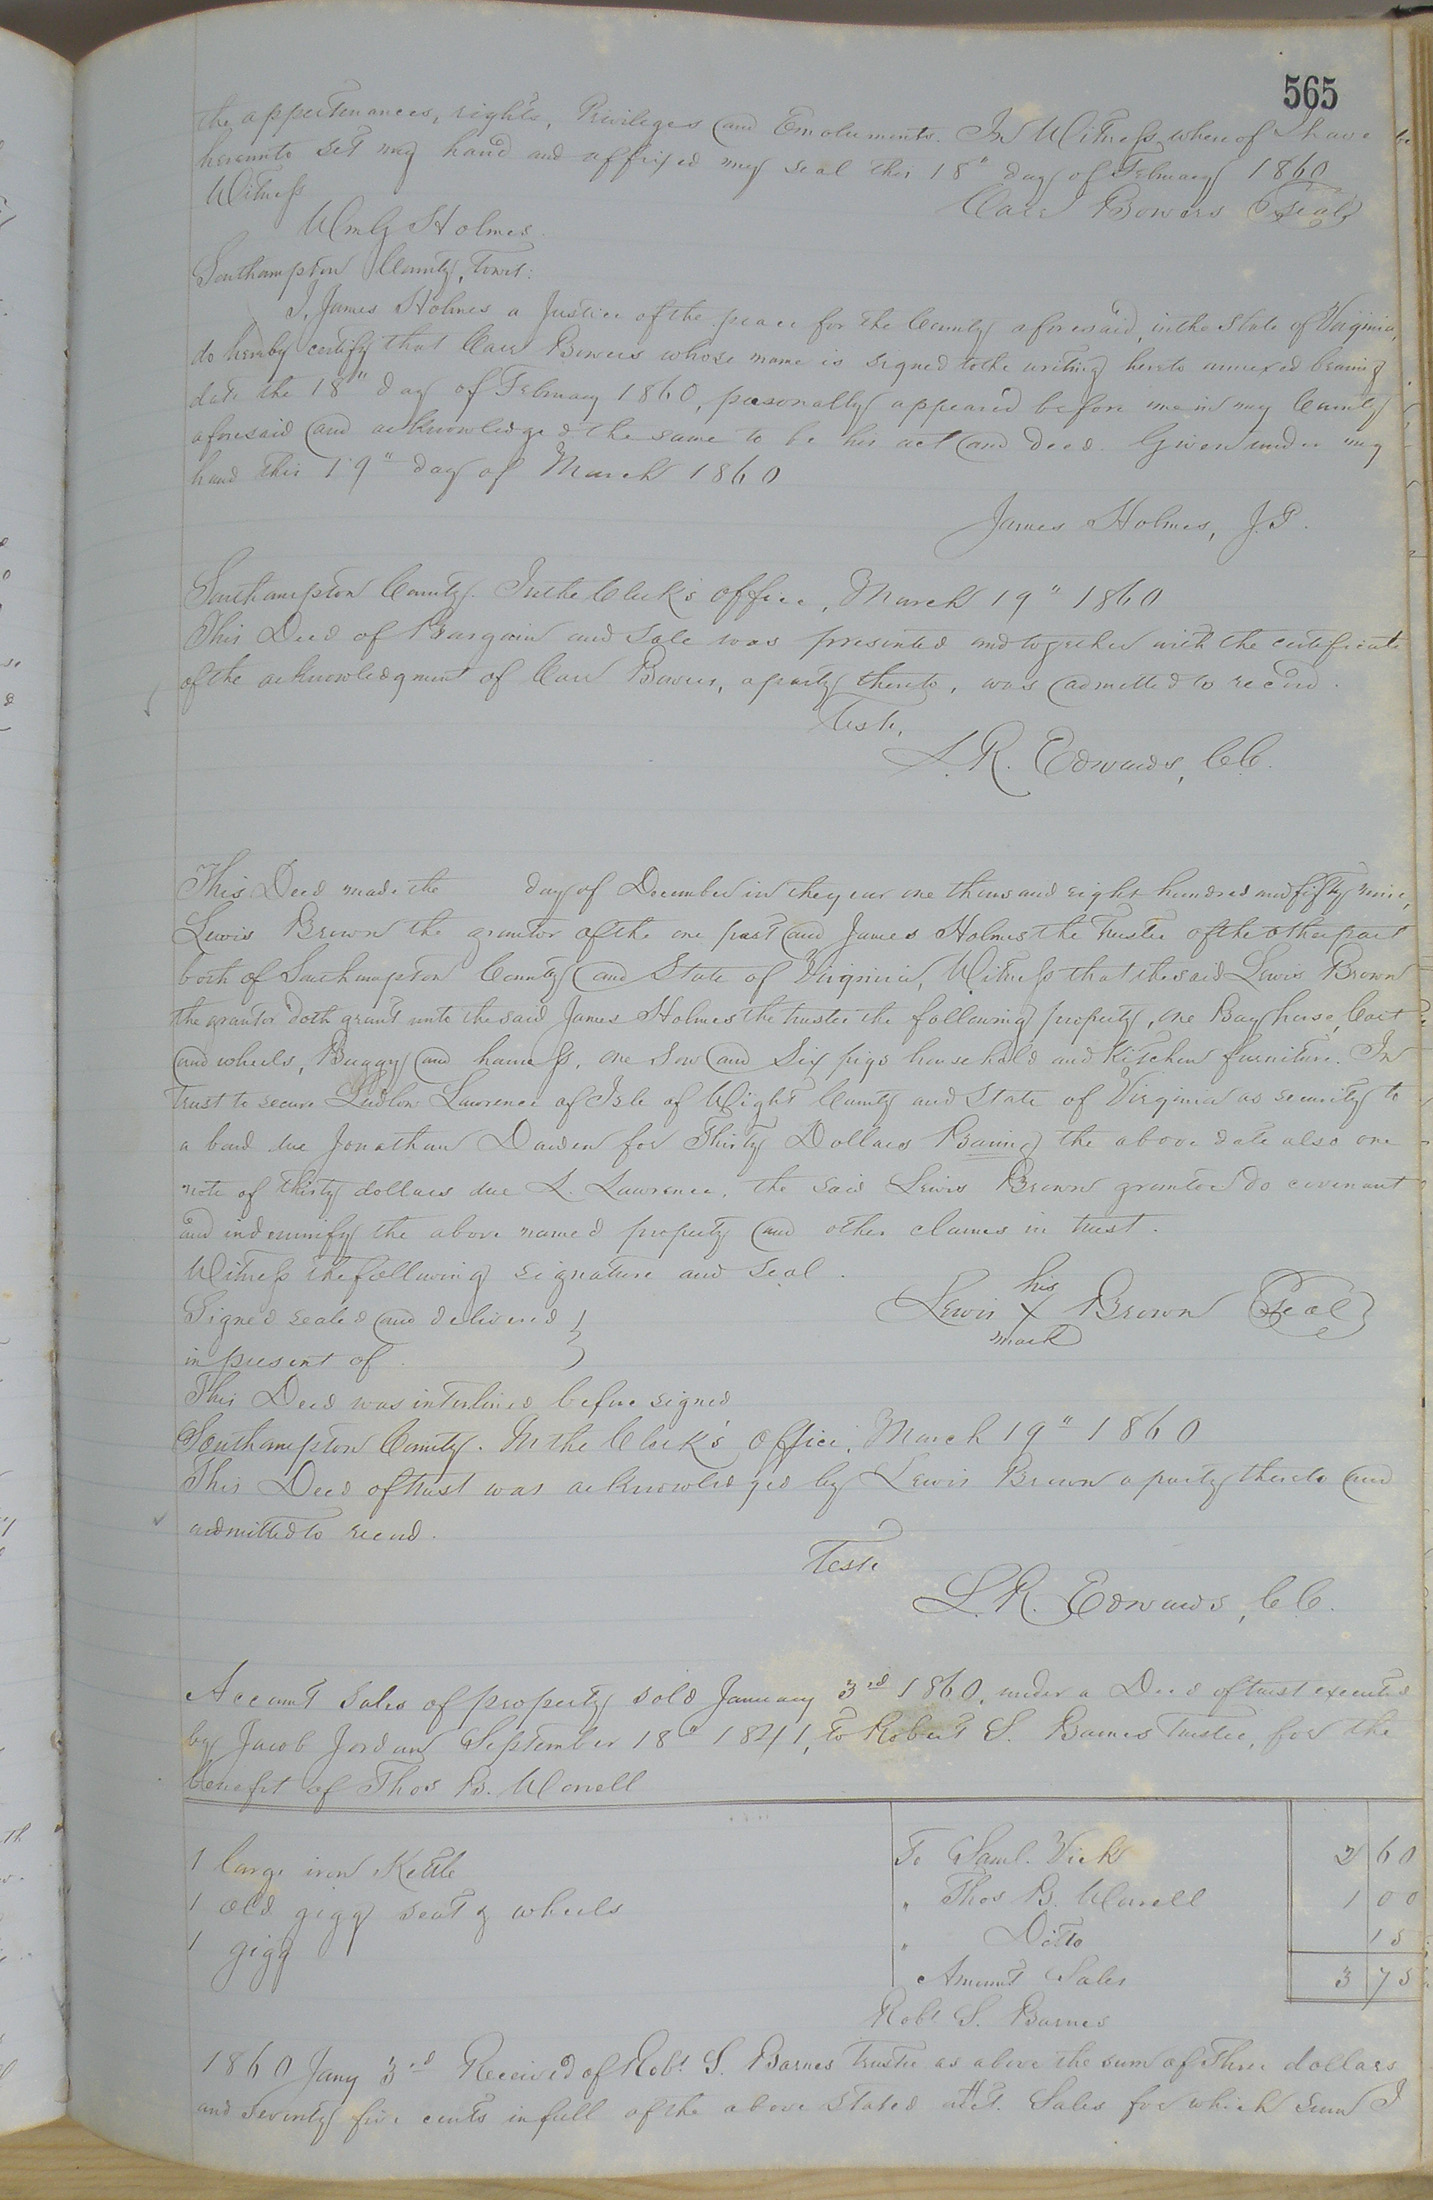 565
the appertenances, rights, Privileges and Emoluments. In Witness whereof I have
hereunto set my hand and affixed my seal this 18" day of February 1860
Witness
Carr Bowers (Seal)
Wm G Holmes
Southampton County, towit:
I, James Holmes a Justice of the peace for the County aforesaid, in the State of Virginia,
do hereby certify that Carr Bowers whose name is signed to the writing hereto annexed bearing
date the 18" day of February 1860, personally appeared before me in my County
aforesaid and acknowledged the same to be his act and deed. Given under my
hand this 19" day of March 1860
James Holmes, J.P.
Southampton County. In the Clerk's office, March 19" 1860
This Deed of Bargain and Sale was presented and together with the certificate
of the acknowledgment of Carr Bowers, a party thereto, was admitted to record.
Teste,
L. R. Edwards, C.C.
This Deed made the day of December in the year one thousand eight hundred and fifty nine,
Lewis Brown the grantor of the one part and James Holmes the Trustee of the other part
both of Southampton County and State of Virginia, Witness that the said Lewis Brown
the grantor doth grant unto the said James Holmes the trustee the following property, one Bay horse, Cart
and wheels, Buggy and harness, one Sow and Six pigs household and Kitchen furniture. In
trust to secure Ludlow Lawrence of Isle of Wight County and State of Virginia as security to
a bond due Jonathan Darden for Thirty Dollars Baring the above date also one
note of thirty dollars due L. Lawrence, the said Lewis Brown grantor do covenant
and indemnify the above named property and other claims in trust.
Witness the following signature and seal.
Signed sealed and delivered }
Lewis his X mark Brown (Seal)
in present of }
This Deed was interlined before signed
Southampton County. In the Clerk's Office, March 19" 1860
This Deed of trust was acknowledged by Lewis Brown a party thereto and
admitted to record.
Teste
L. R. Edwards, C.C.
Account Sales of property sold January 3rd 1860, under a Deed of trust executed
by Jacob Jordan September 18" 1841, to Robert S. Barnes Trustee, for the
benefit of Thos B. Worrell
1 large iron Kettle To Saml. Vick 2 60
1 old gigg seat & wheels " Thos B. Worrell 1 00
1 gigg " Ditto 15
Amount Sales 3 75
Robt S. Barnes
1860 Jany 3rd Received of Robt S. Barnes Trustee as above the sum of Three dollars
and seventy five cents in full of the above stated acct. Sales for which sum I